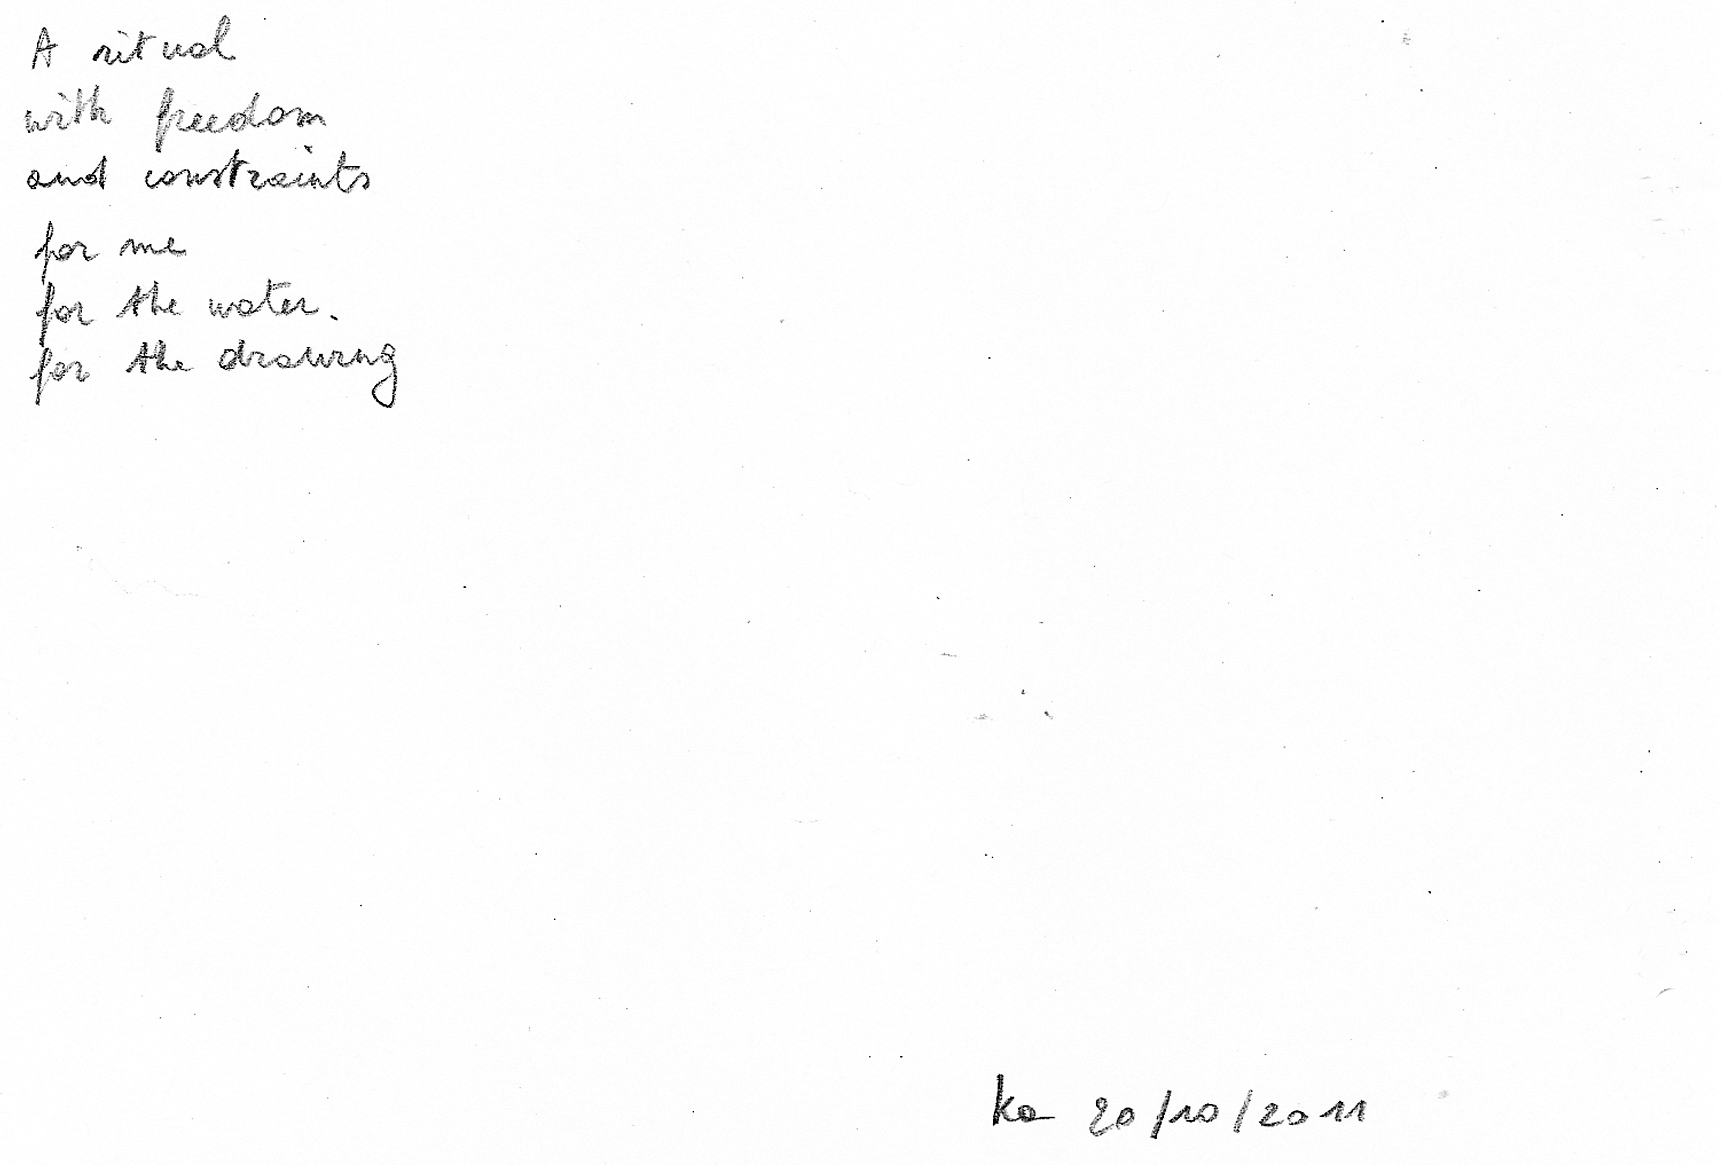 A ritual
with freedom
and constraints
for me
for the water.
for the drawing
ka 20/10/2011